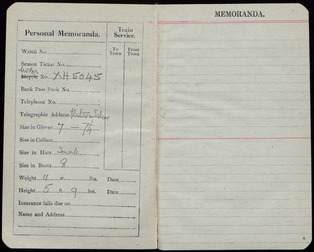 MEMORANDA.
Personal Memoranda.
Train Service.
To Town
From Town
Watch No.
Season Ticket No.
Motor
Bicycle No. XH 5045
Bank Pass Book No.
Telephone No.
Telegraphic Address
Size in Gloves 7 – 7¼
Size in Collars
Size in Hats Small
Size in Boots 8
Weight 11 st. lbs. Date
Height 5 ft 9 ins. Date
Insurance falls due on
Name and Address